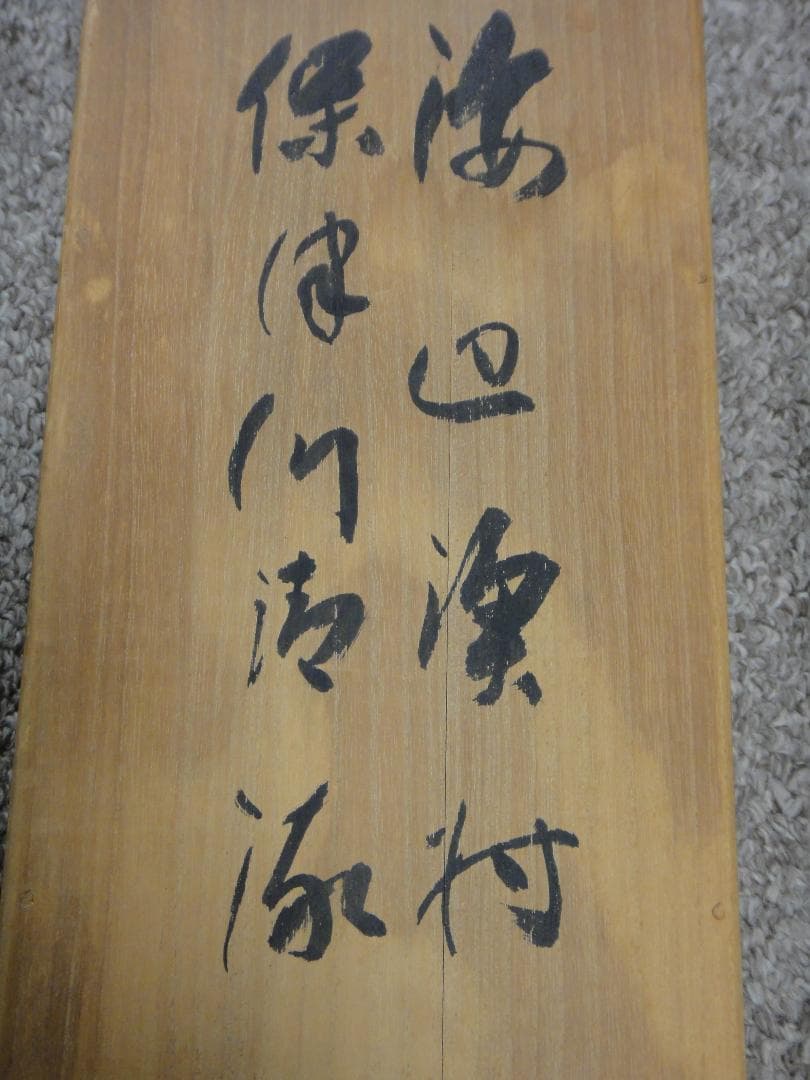 海辺漁村
保津川清流